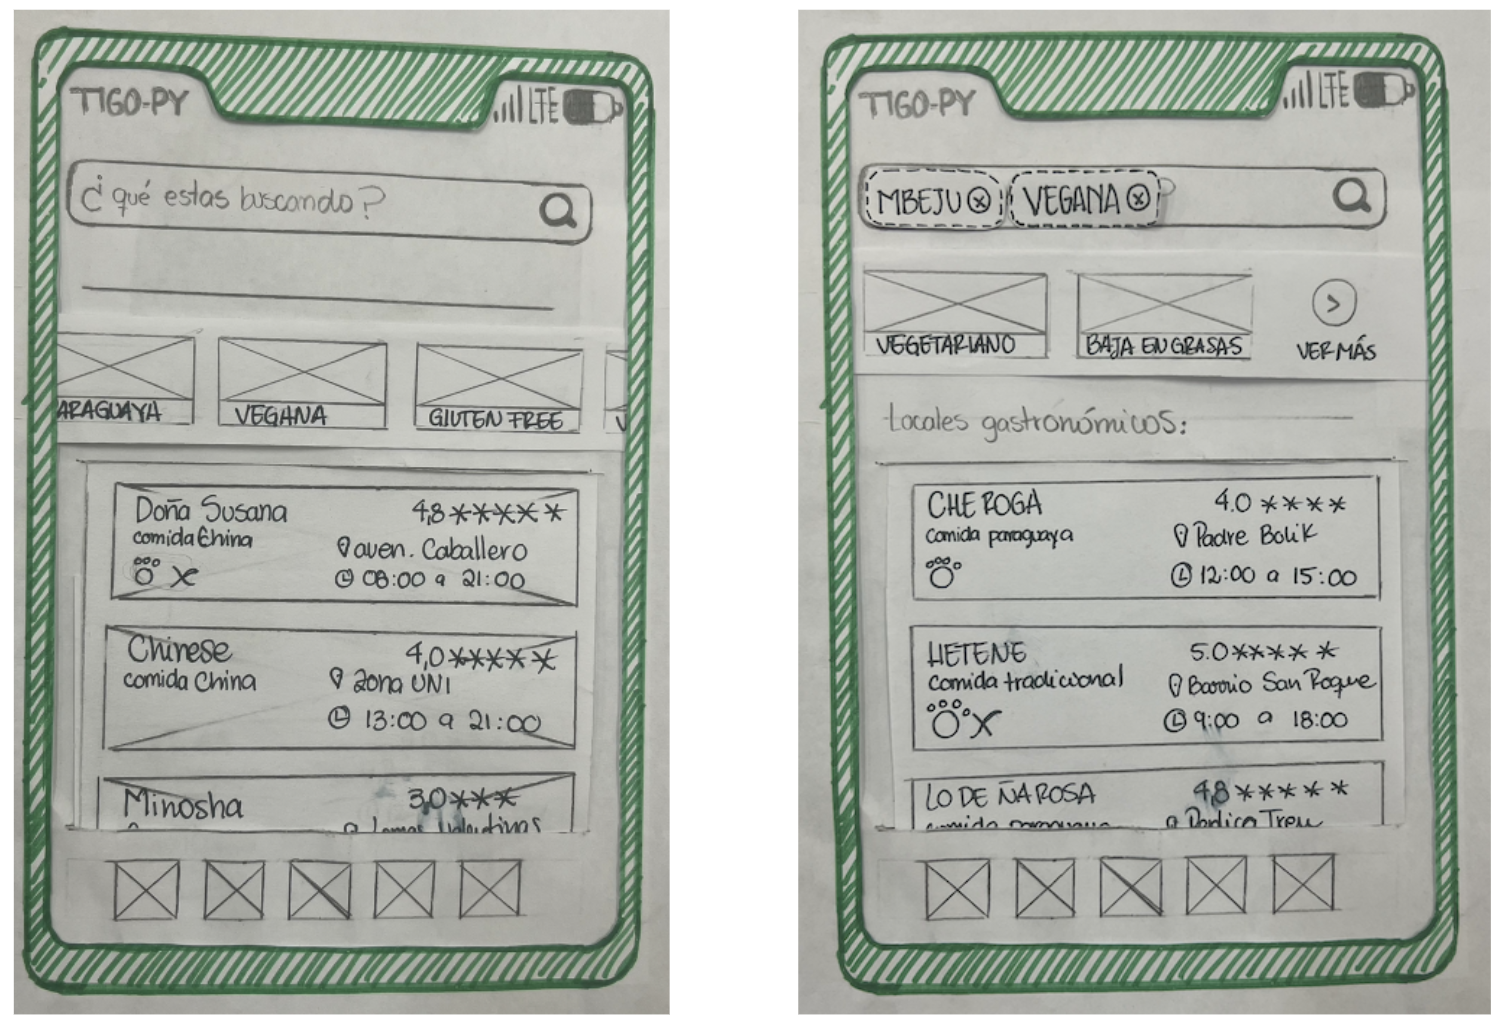 TIGO-PY LTE
¿qué estas buscando?
ARAGUAYA VEGANA GLUTEN FREE V
Doña Susana 4,8 *****
comida China aven. Caballero
X 08:00 a 21:00
Chinese 4,0 *****
comida China zona UNI
13:00 a 21:00
Minosha 3.0 ***
Lomas Valentinas
TIGO-PY LTE
MBEJU ⓧ VEGANA ⓧ ?
VEGETARIANO BAJA EN GRASAS > VER MÁS
Locales gastronómicos:
CHE ROGA 4.0 ****
comida paraguaya Padre Bolik
12:00 a 15:00
HETENE 5.0 *****
comida tradicional Barrio San Roque
X 9:00 a 18:00
LO DE ÑA ROSA 4,8 *****
comida paraguaya